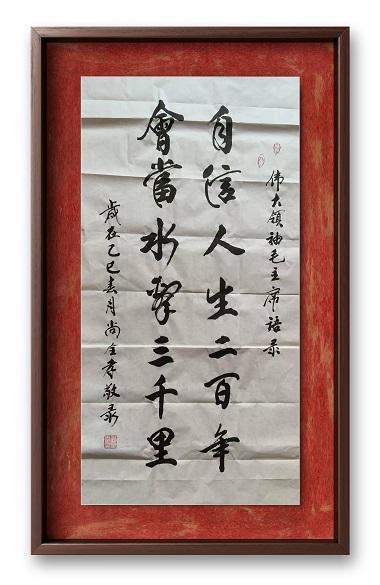 伟大領袖毛主席语录
自信人生二百年
會當水擊三千里
歲在乙巳春月尚全孝敬录